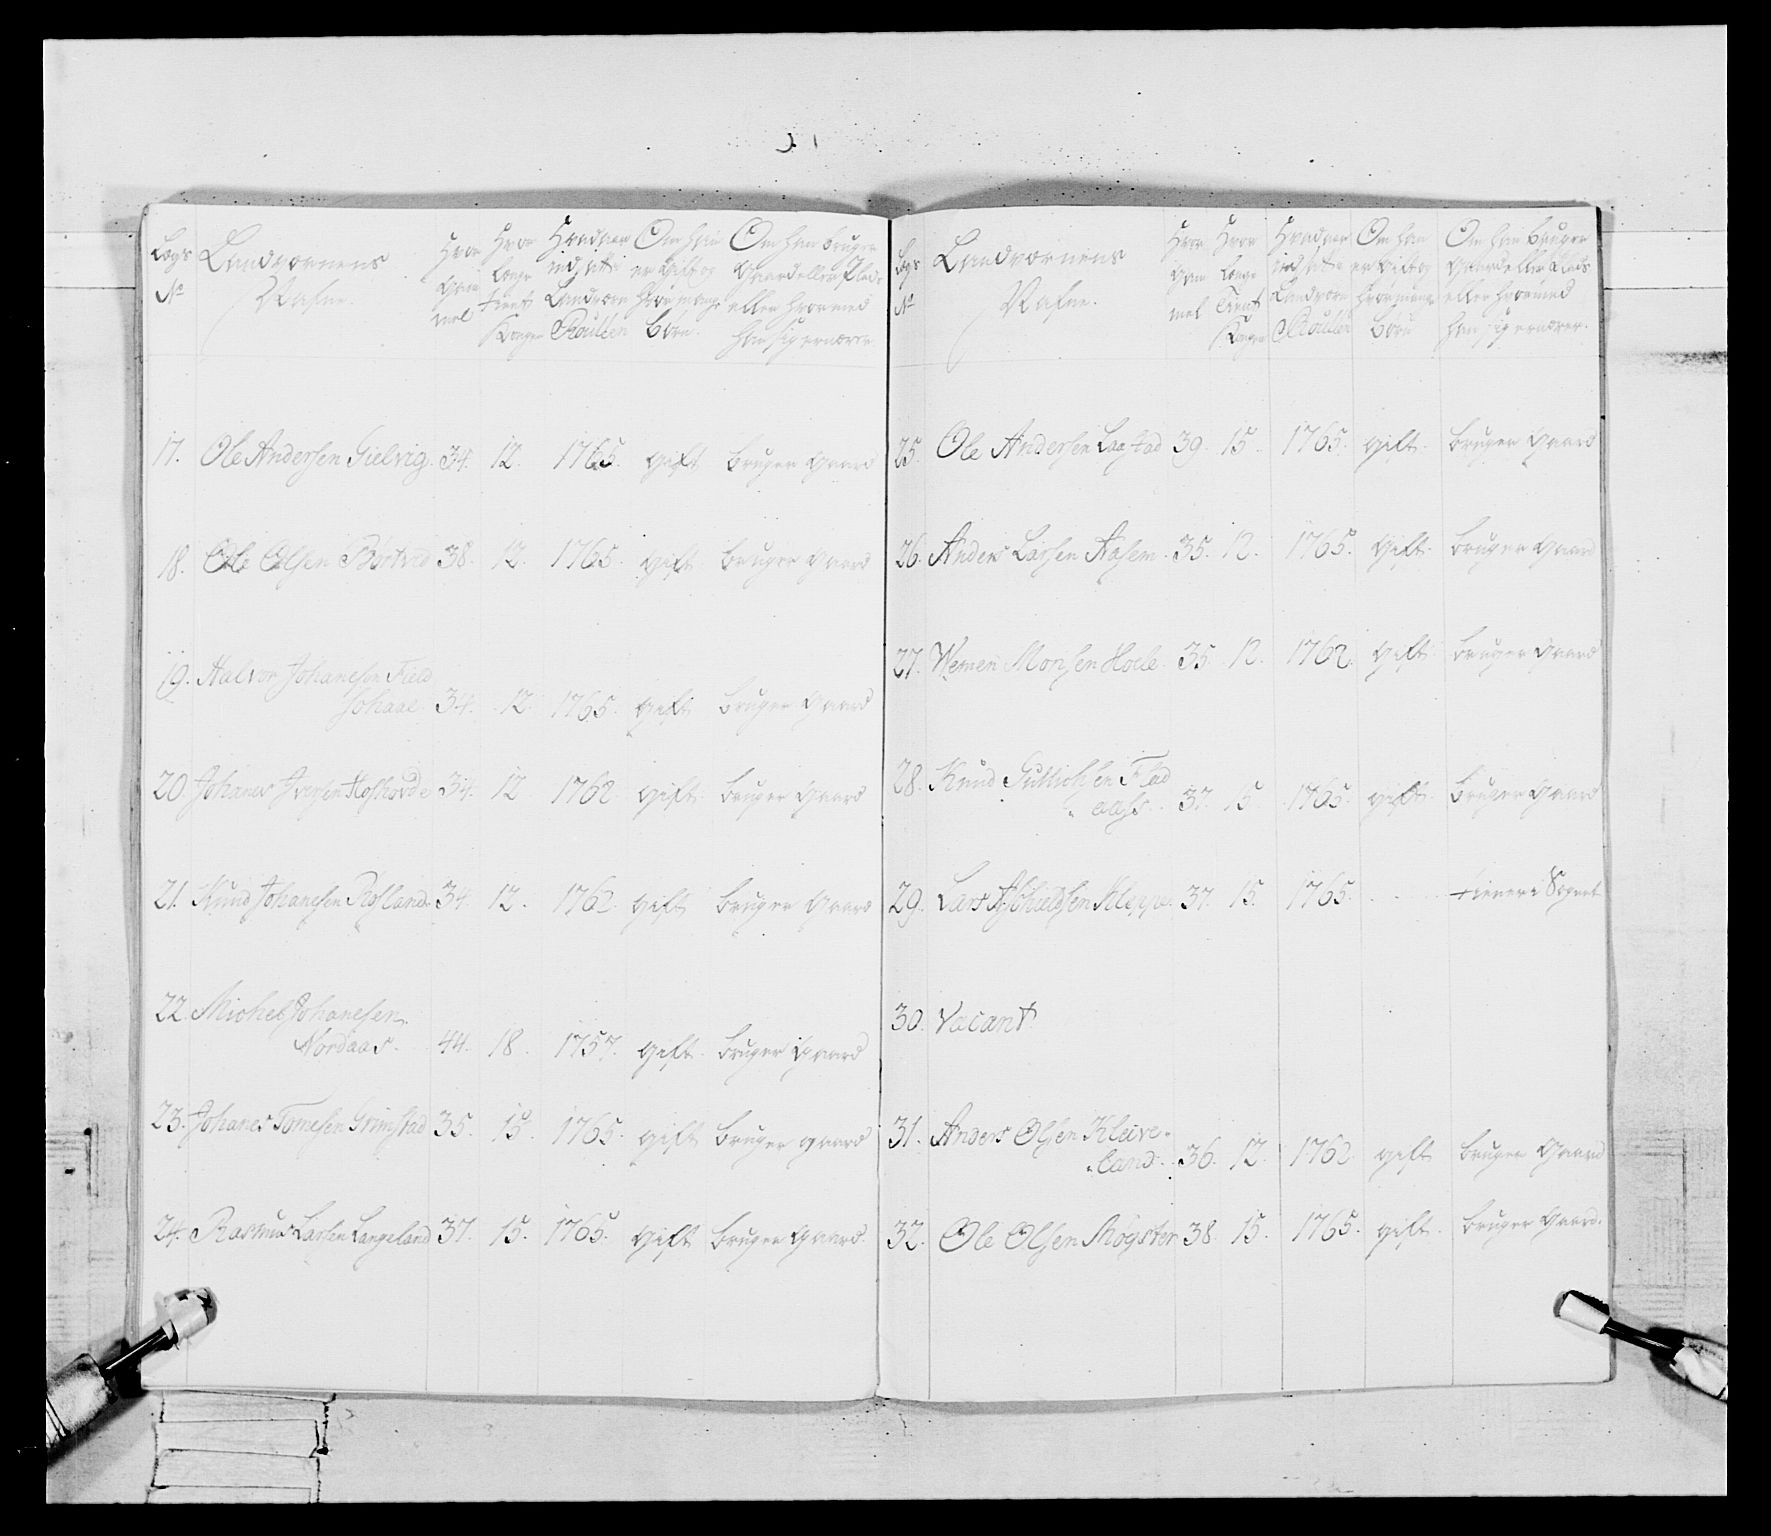 Legs No
Landværnens Nafne.
Hvor gam mel
Hvor længe tient Kongen
Hvad aar indsatte Landværn Roullen
Om han er gift og hvor mange Børn.
Om han bruger gaard eller Plads eller hvormed han sig ernærer
17. Ole Andersen Gielvig. 34. 12. 1765. gift bruger gaard
18. Ole Olsen 38. 12. 1765. gift bruger gaard
19. Halvor Johanesen Field
schaae. 34. 12. 1765. gift bruger gaard
20. Johanes Iversen Hofshovde 34. 12 1762. gift bruger gaard
21. Knud Johanesen Røfland. 34. 12. 1762. gift bruger gaard
22. Michel Johanesen
Nordaas. 44. 18. 1757. gift. bruger gaard
23. Johanes Tomesen Grimstad 35. 15. 1765. gift bruger gaard
24. Rasmus Larsen Langeland 37. 15. 1765. gift bruger gaard.
Legs No
Landværnens Nafne.
Hvor gam mel
Hvor længe tient Kongen
Hvad aar ind satte Landværn Roullen
Om han er gift og hvor mange Børn
Om han bruger gaard eller Plads eller hvormed han sig ernærer.
25. Ole Andersen Laastad 39. 15. 1765. gift. bruger gaard
26. Anders Larsen Aasem. 35. 12. 1765. gift. bruger gaard
27. Monsen Hole. 35. 12. 1762. gift. bruger gaard
28. Knud Gullichsen Flad
aass. 37. 15 1765. gift. bruger gaard
29. Lars Kleppe. 37. 15. 1765. . . . tiener i Sognet
30. Vacant.
31. Anders Olsen Kleive-
land. 36. 12. 1762 gift bruger gaard
32. Ole Olsen Møgster 38. 15. 1765. gift. bruger gaard.